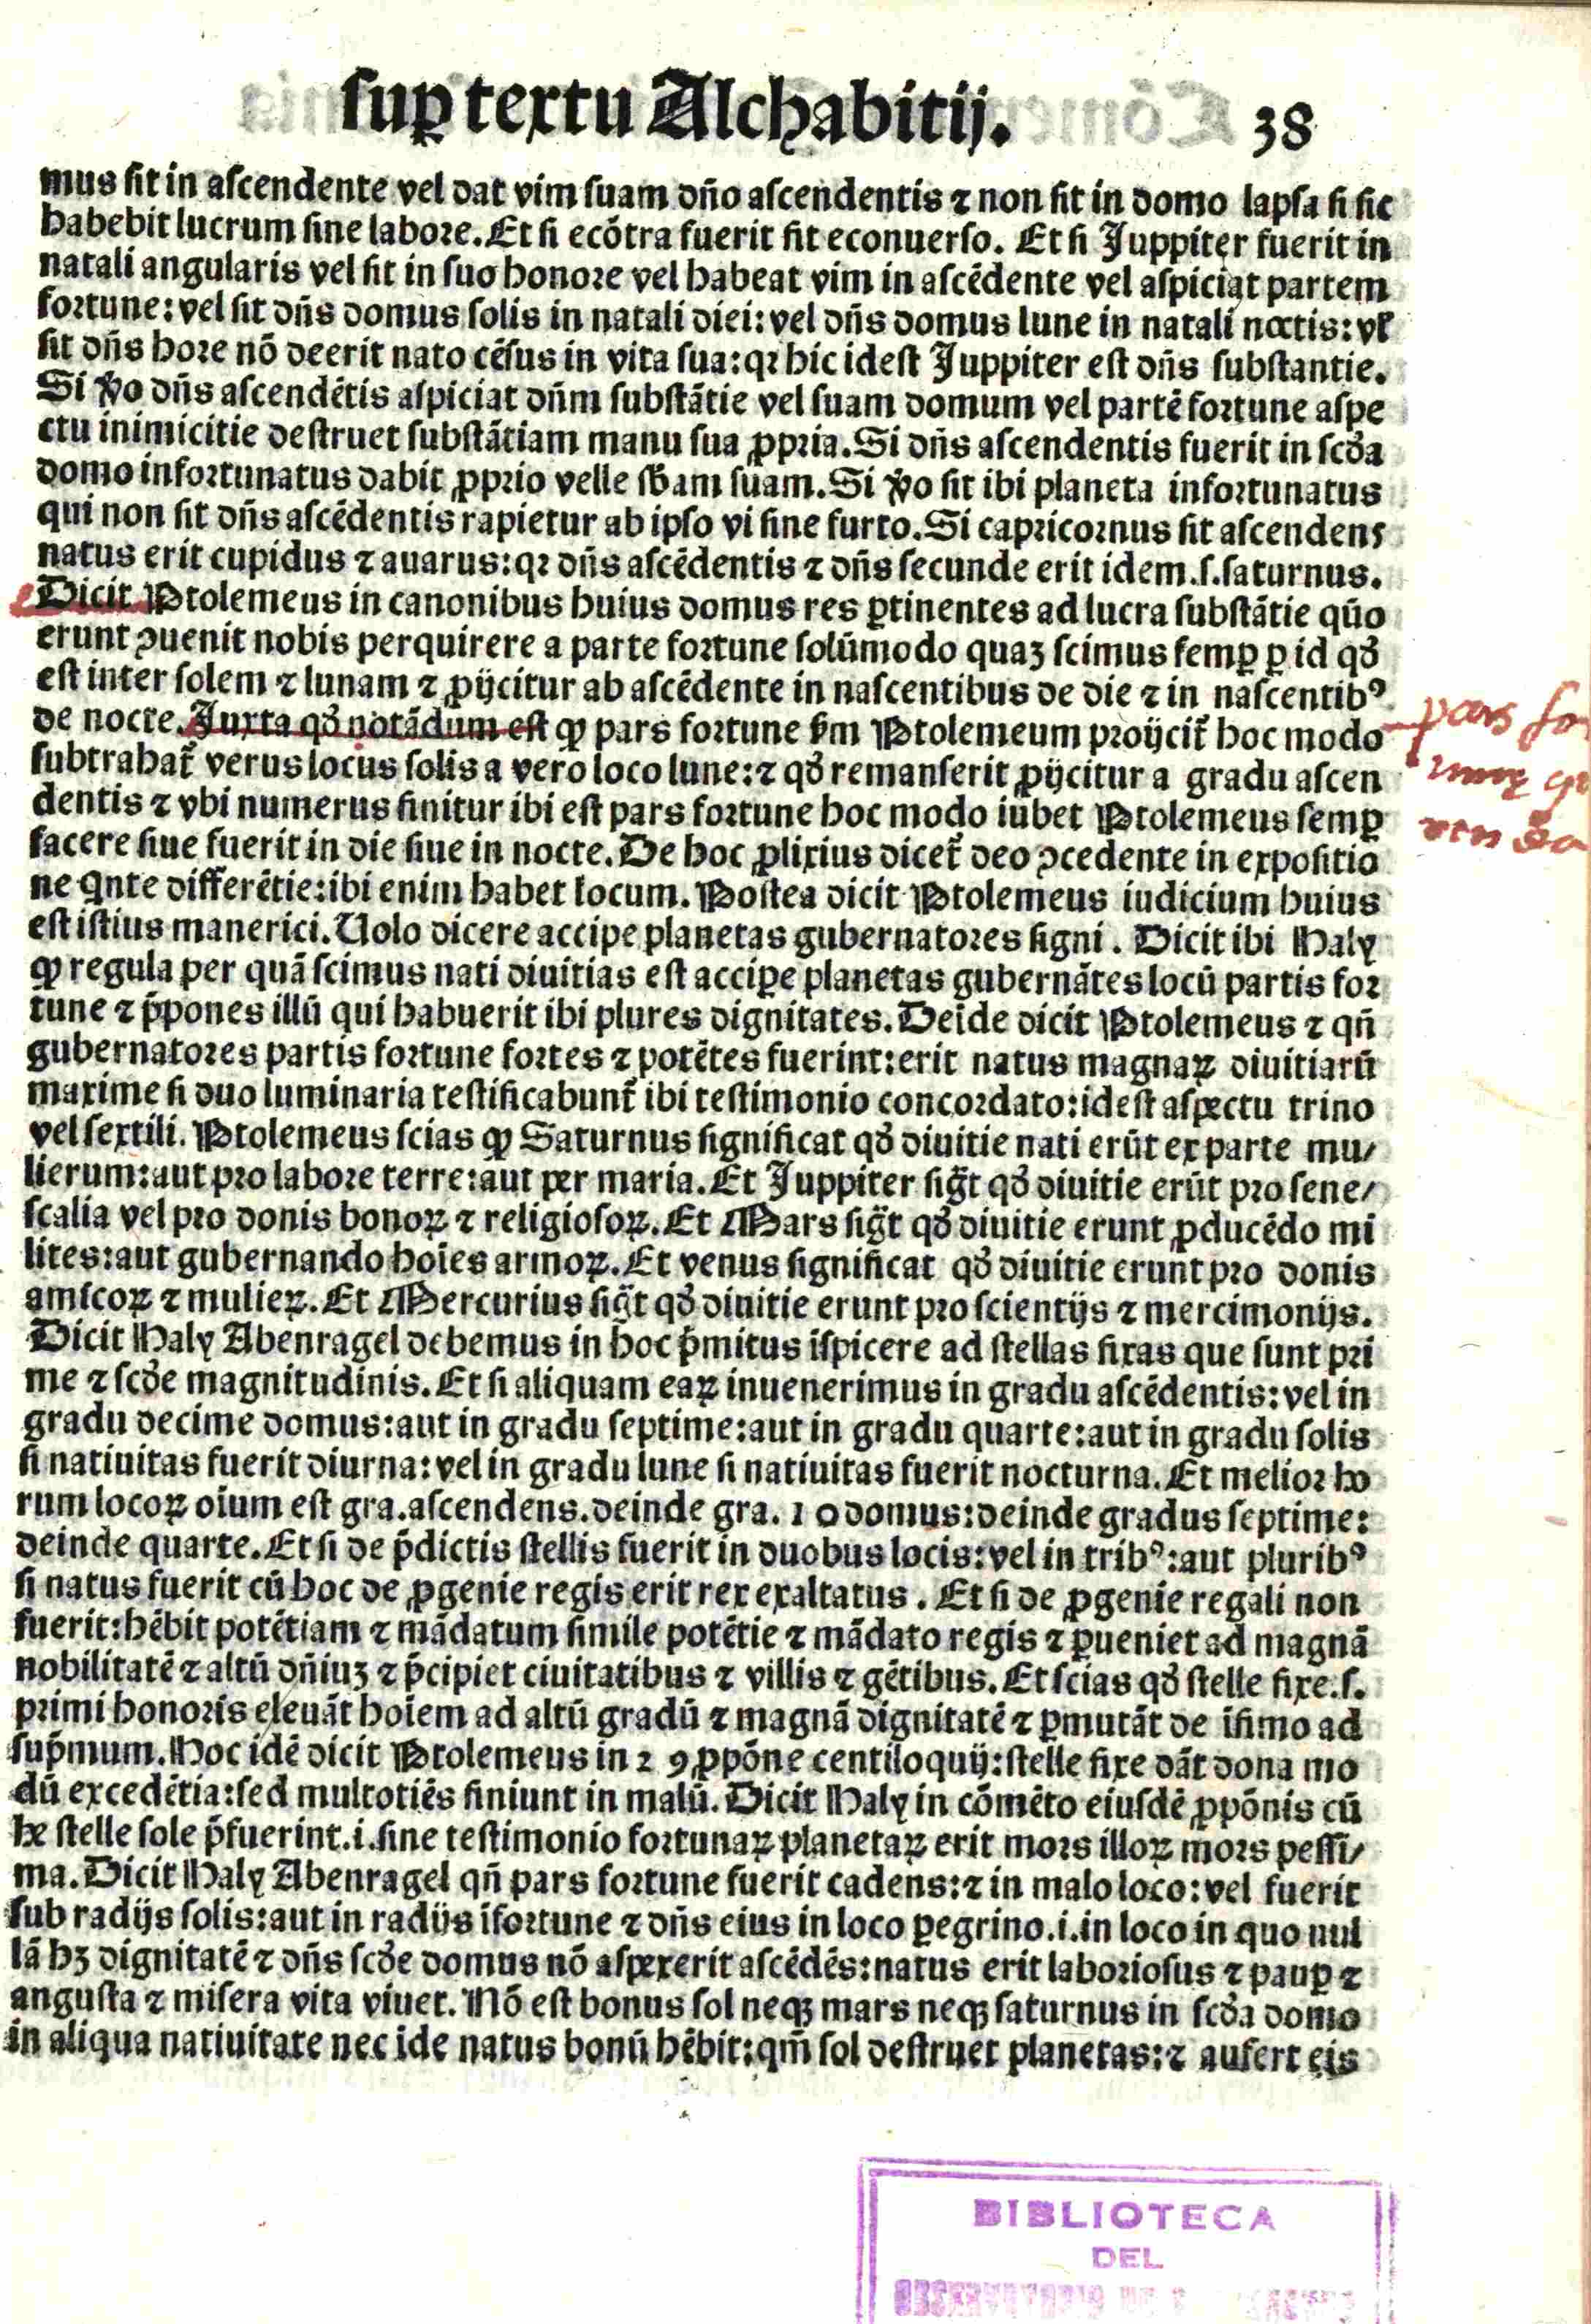 sup̱ textu Alchabitij. 38
mus sit in ascendente vel dat vim suam dño ascendentis ⁊ non sit in domo lapsa si sic
habebit lucrum sine labore. Et si ecõtra fuerit fit econuerso. Et si Juppiter fuerit in
natali angularis vel sit in suo honore vel habeat vim in ascẽdente vel aspiciat partem
fortune: vel sit dñs domus solis in natali diei: vel dñs domus lune in natali noctis: vł
sit dñs hore nõ deerit nato cẽsus in vita sua: qꝛ hic idest Juppiter est dñs substantie.
Si ꝟo dñs ascendẽtis aspiciat dñm substãtie vel suam domum vel partẽ fortune aspe
ctu inimicitie destruet substãtiam manu sua ꝓpria. Si dñs ascendentis fuerit in scďa
domo infortunatus dabit ꝓprio velle sƀam suam. Si ꝟo sit ibi planeta infortunatus
qui non sit dñs ascẽdentis rapietur ab ipso vi sine furto. Si capricornus sit ascendens
natus erit cupidus ⁊ auarus: qꝛ dñs ascẽdentis ⁊ dñs secunde erit idem .s. saturnus.
Dicit Ptolemeus in canonibus huius domus res ꝑtinentes ad lucra substãtie qũo
erunt ꝯuenit nobis perquirere a parte fortune solũmodo quaꝫ scimus semꝑ ꝑ id qď
est inter solem ⁊ lunam ⁊ ꝓijcitur ab ascẽdente in nascentibus de die ⁊ in nascentibꝰ
de nocte. Juxta qď notãdum est ꝙ pars fortune ẜm Ptolemeum proijcit̃ hoc modo
subtrahat̃ verus locus solis a vero loco lune: ⁊ qď remanserit ꝓijcitur a gradu ascen
dentis ⁊ vbi numerus finitur ibi est pars fortune hoc modo iubet Ptolemeus semꝑ
facere siue fuerit in die siue in nocte. De hoc ꝓlixius dicet̃ deo ꝯcedente in expositio
ne q̃nte differẽtie: ibi enim habet locum. Postea dicit Ptolemeus iudicium huius
est istius manerici. Uolo dicere accipe planetas gubernatores signi. Dicit ibi Haly
ꝙ regula per quã scimus nati diuitias est accipe planetas gubernãtes locũ partis for
tune ⁊ p̃pones illũ qui habuerit ibi plures dignitates. Deĩde dicit Ptolemeus ⁊ qñ
gubernatores partis fortune fortes ⁊ potẽtes fuerint: erit natus magnaꝝ diuitiarũ
maxime si duo luminaria testificabunt̃ ibi testimonio concordato: idest aspectu trino
vel sextili. Ptolemeus scias ꝙ Saturnus significat qď diuitie nati erũt ex parte mu/
lierum: aut pro labore terre: aut per maria. Et Juppiter sig̃t qď diuitie erũt pro sene/
scalia vel pro donis bonoꝝ ⁊ religiosoꝝ. Et Mars sig̃t qď diuitie erunt ꝓducẽdo mi
lites: aut gubernando hoĩes armoꝝ. Et venus significat qď diuitie erunt pro donis
amicoꝝ ⁊ mulieꝝ. Et Mercurius sig̃t qď diuitie erunt pro scientijs ⁊ mercimonijs.
Dicit Haly Abenragel debemus in hoc p̃mitus ĩspicere ad stellas fixas que sunt pri
me ⁊ scďe magnitudinis. Et si aliquam eaꝝ inuenerimus in gradu ascẽdentis: vel in
gradu decime domus: aut in gradu septime: aut in gradu quarte: aut in gradu solis
si natiuitas fuerit diurna: vel in gradu lune si natiuitas fuerit nocturna. Et melior ho
rum locoꝝ oĩum est gra. ascendens. deinde gra. 10 domus: deinde gradus septime:
deinde quarte. Et si de p̃dictis stellis fuerit in duobus locis: vel in tribꝰ: aut pluribꝰ
si natus fuerit cũ hoc de ꝓgenie regis erit rex exaltatus. Et si de ꝓgenie regali non
fuerit: hẽbit potẽtiam ⁊ mãdatum simile potẽtie ⁊ mãdato regis ⁊ ꝑueniet ad magnã
nobilitatẽ ⁊ altũ dñiuꝫ ⁊ p̃cipiet ciuitatibus ⁊ villis ⁊ gẽtibus. Et scias qď stelle fixe .s.
primi honoris eleuãt hoĩem ad altũ gradũ ⁊ magnã dignitatẽ ⁊ ꝑmutãt de ĩfimo ad
sup̃mum. Hoc idẽ dicit Ptolemeus in 29 ꝓpõne centiloquij: stelle fixe dãt dona mo
dũ excedẽtia: sed multotiẽs finiunt in malũ. Dicit Haly in cõmẽto eiusdẽ ꝓpõnis cũ
he stelle sole p̃fuerint .i. sine testimonio fortunaꝝ planetaꝝ erit mors illoꝝ mors pessi/
ma. Dicit Haly Abenragel qñ pars fortune fuerit cadens: ⁊ in malo loco: vel fuerit
sub radijs solis: aut in radijs ĩfortune ⁊ dñs eius in loco ꝑegrino .i. in loco in quo nul
lã hꝫ dignitatẽ ⁊ dñs scďe domus nõ aspexerit ascẽdẽs: natus erit laboriosus ⁊ pauꝑ ⁊
angusta ⁊ misera vita viuet. Nõ est bonus sol neqꝫ mars neqꝫ saturnus in scďa domo
in aliqua natiuitate nec ĩde natus bonũ hẽbit: qm̃ sol destruet planetas: ⁊ aufert eis
pars fo
BIBLIOTECA
DEL